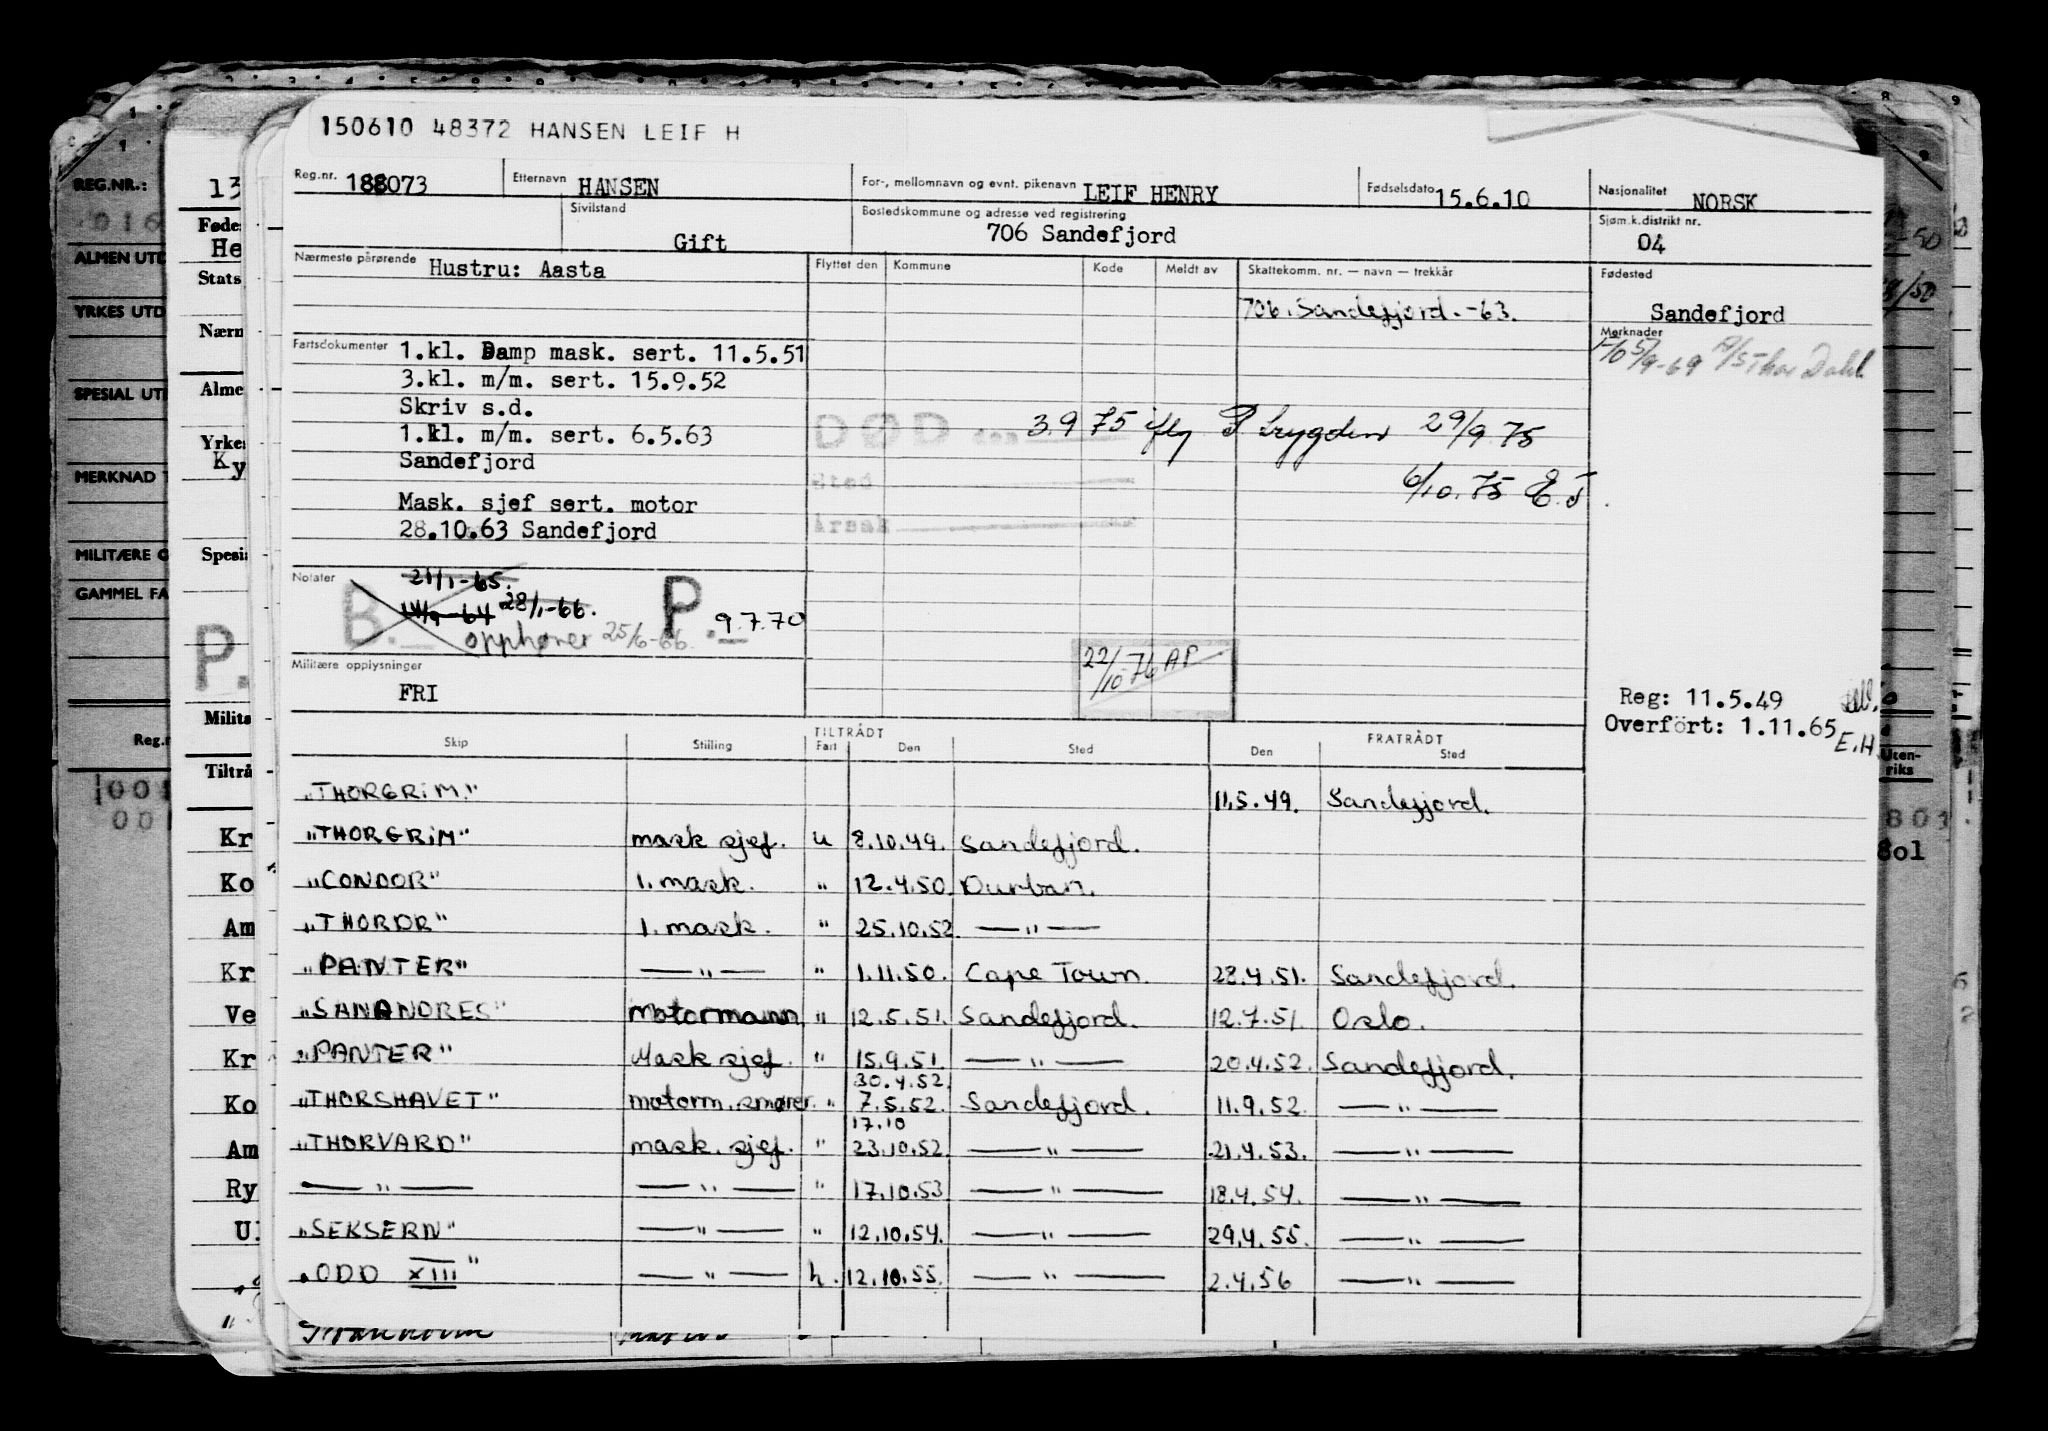 150610 48372 HANSEN LEIF H
Reg.nr. 188073 Etternavn HANSEN For-, mellomnavn og evnt. pikenavn LEIF HENRY Fødselsdato 15.6.10 Nasjonalitet NORSK
Sivilstand Gift Bostedskommune og adresse ved registrering 706 Sandefjord Sjøm.k.distrikt nr. 04
Nærmeste pårørende Hustru: Aasta Flyttet den Kommune Kode Meldt av Skattekomm. nr. — navn — trekkår Fødested
706. Sandefjord. -63. Sandefjord
Merknader
5/9-69 A/S Thor Dahl
Fartsdokumenter 1.kl. Damp mask. sert. 11.5.51
3.kl. m/m. sert. 15.9.52
Skriv s.d.
1.kl. m/m. sert. 6.5.63
Sandefjord
Mask. sjef sert. motor
28.10.63 Sandefjord
DØD den 3.9 75 iflg trygden 29/9 75
Sted 6/10.75 E.J.
Årsak
Notater 21/1-65.
B. 14/9-64 28/1-66. P. 9.7.70
opphører 25/6-66.
22/10-76 AP
Militære opplysninger
FRI
Reg: 11.5.49
Overført: 1.11.65 E.H
TILTRÅDT FRATRÅDT
Skip Stilling Fart Den Sted Den Sted
"THORGRIM." 11.5.49. Sandefjord.
"THORGRIM" mask sjef. u 8.10.49. Sandefjord.
"CONDOR" 1. mask. " 12.4.50. Durban.
"THORDR" 1. mask. " 25.10.52. — " —
"PANTER" — " — " 1.11.50. Cape Town. 28.4.51. Sandefjord.
"SANANDRES" Motormann. " 12.5.51. Sandefjord. 12.7.51. Oslo.
"PANTER" Mask sjef. " 15.9.51. — " — 20.4.52. Sandefjord.
30.4.52.
"THORSHAVET" motorm. smører. " 7.5.52. Sandefjord. 11.9.52. — " —
17.10
"THORVARD" mask. sjef. " 23.10.52. — " — 21.4.53. — " —
— " — — " — " 17.10.53 — " — 18.4.54. — " —
"SEKSERN" — " — " 12.10.54. — " — 29.4.55. — " —
"ODD XIII" — " — h. 12.10.55. — " — 2.4.56 — " —
REG.NR.:
016
ALMEN UTD
YRKES UTD
SPESIAL UTD
MERKNAD T
MILITÆRE O
GAMMEL FA
Reg.n
001
001
13
Føde
He
Stats
Nærn
Alme
Yrke
Ky
Spesia
P.
Milita
Tiltrå
Kr
Ko
Am
Kr
Ve
Kr
Ko
Am
Ry
Ul
Uten-
riks
803
8o1